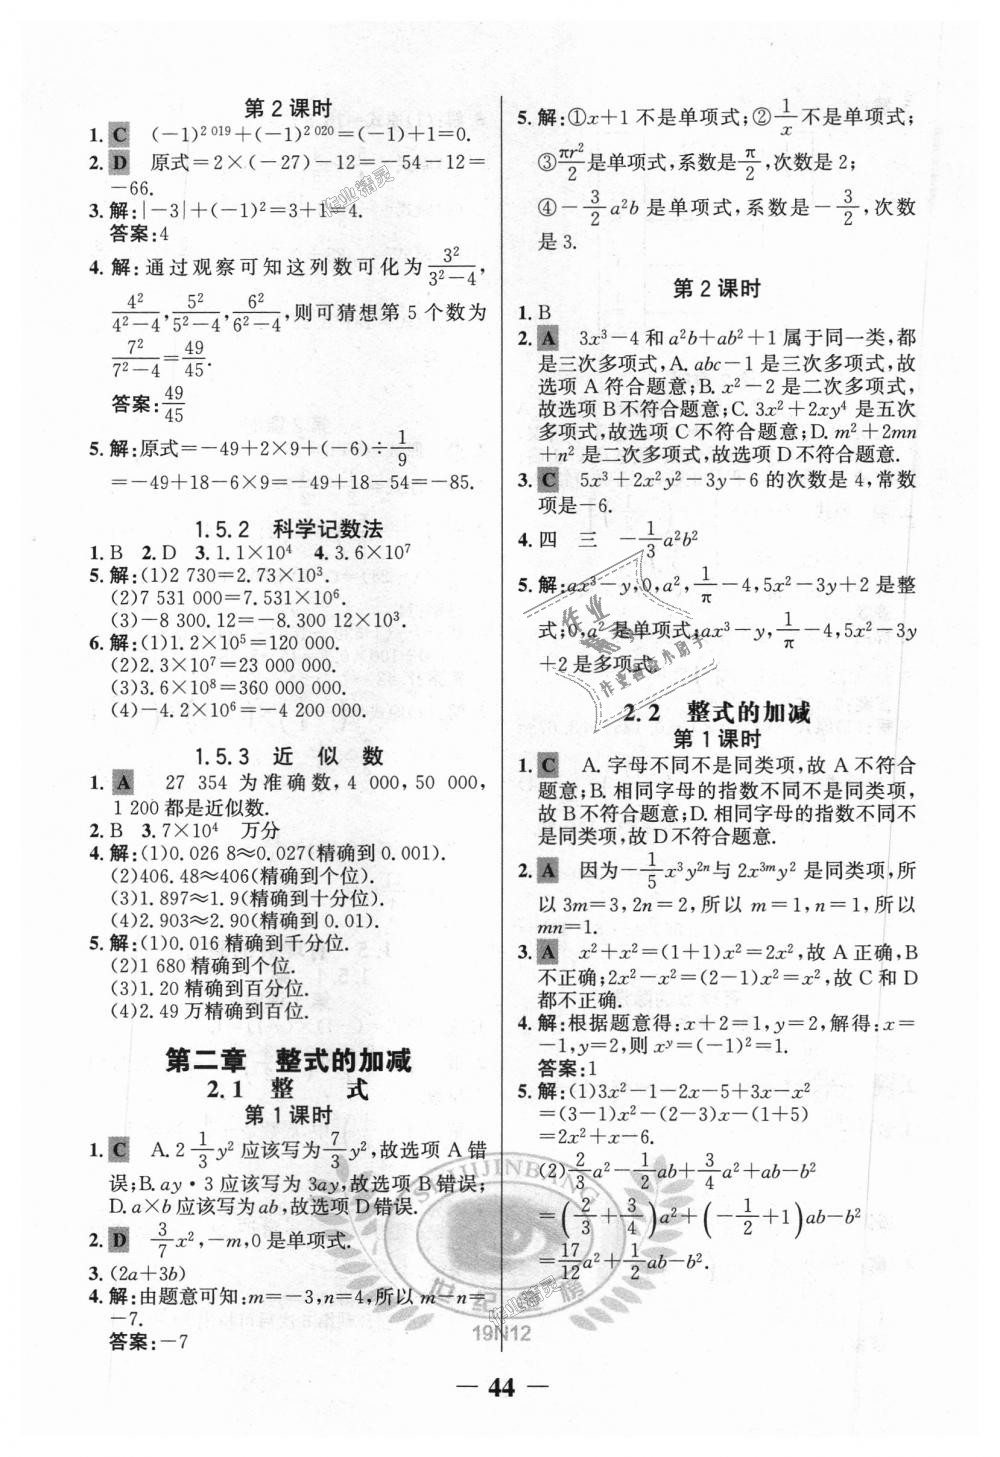 第2课时
1. C (-1)^2019+(-1)^2020=(-1)+1=0.
2. D 原式=2×(-27)-12=-54-12=
-66.
3. 解:|-3|+(-1)²=3+1=4.
答案:4
4. 解:通过观察可知这列数可化为3²/(3²-4),
4²/(4²-4),5²/(5²-4),6²/(6²-4),则可猜想第5个数为
7²/(7²-4)=49/45.
答案:49/45
5. 解:原式=-49+2×9+(-6)÷1/9
=-49+18-6×9=-49+18-54=-85.
1.5.2 科学记数法
1. B 2. D 3. 1.1×10⁴ 4. 3.6×10⁷
5. 解:(1)2 730=2.73×10³.
(2)7 531 000=7.531×10⁶.
(3)-8 300.12=-8.300 12×10³.
6. 解:(1)1.2×10⁵=120 000.
(2)2.3×10⁷=23 000 000.
(3)3.6×10⁸=360 000 000.
(4)-4.2×10⁶=-4 200 000.
1.5.3 近似数
1. A 27 354 为准确数,4 000,50 000,
1 200都是近似数.
2. B 3. 7×10⁴ 万分
4. 解:(1)0.026 8≈0.027(精确到0.001).
(2)406.48≈406(精确到个位).
(3)1.897≈1.9(精确到十分位).
(4)2.903≈2.90(精确到0.01).
5. 解:(1)0.016精确到千分位.
(2)1 680精确到个位.
(3)1.20精确到百分位.
(4)2.49万精确到百位.
第二章 整式的加减
2.1 整式
第1课时
1. C A. 2 1/3 y²应该写为7/3 y²,故选项A错
误;B. ay·3应该写为3ay,故选项B错误;
D. a×b应该写为ab,故选项D错误.
2. D 3/7 x²,-m,0是单项式.
3. (2a+3b)
4. 解:由题意可知:m=-3,n=4,所以m-n=
-7.
答案:-7
5. 解:①x+1不是单项式;②1/x不是单项式;
③πr²/2是单项式,系数是π/2,次数是2;
④-3/2 a²b是单项式,系数是-3/2,次数
是3.
第2课时
1. B
2. A 3x³-4和a²b+ab²+1属于同一类,都
是三次多项式,A. abc-1是三次多项式,故
选项A符合题意;B. x²-2是二次多项式,
故选项B不符合题意;C. 3x²+2xy⁴是五次
多项式,故选项C不符合题意;D. m²+2mn
+n²是二次多项式,故选项D不符合题意.
3. C 5x³+2x²y²-3y-6的次数是4,常数
项是-6.
4. 四 三 -1/3 a²b²
5. 解:ax³-y,0,a²,1/π-4,5x²-3y+2是整
式;0,a²是单项式;ax³-y,1/π-4,5x²-3y
+2是多项式.
2.2 整式的加减
第1课时
1. C A. 字母不同不是同类项,故A不符合
题意;B. 相同字母的指数不同不是同类项,
故B不符合题意;D. 相同字母的指数不同不
是同类项,故D不符合题意.
2. A 因为-1/5 x³y²ⁿ与2x³ᵐy²是同类项,所
以3m=3,2n=2,所以m=1,n=1,所以
mn=1.
3. A x²+x²=(1+1)x²=2x²,故A正确,B
不正确;2x²-x²=(2-1)x²=x²,故C和D
都不正确.
4. 解:根据题意得:x+2=1,y=2,解得:x=
-1,y=2,则x^y=(-1)²=1.
答案:1
5. 解:(1)3x²-1-2x-5+3x-x²
=(3-1)x²-(2-3)x-(1+5)
=2x²+x-6.
(2)2/3 a²-1/2 ab+3/4 a²+ab-b²
=(2/3+3/4)a²+(-1/2+1)ab-b²
=17/12 a²+1/2 ab-b².
作业精灵
作业
作业检查小助手
SHIJINBANG
世纪金榜
19N12
— 44 —